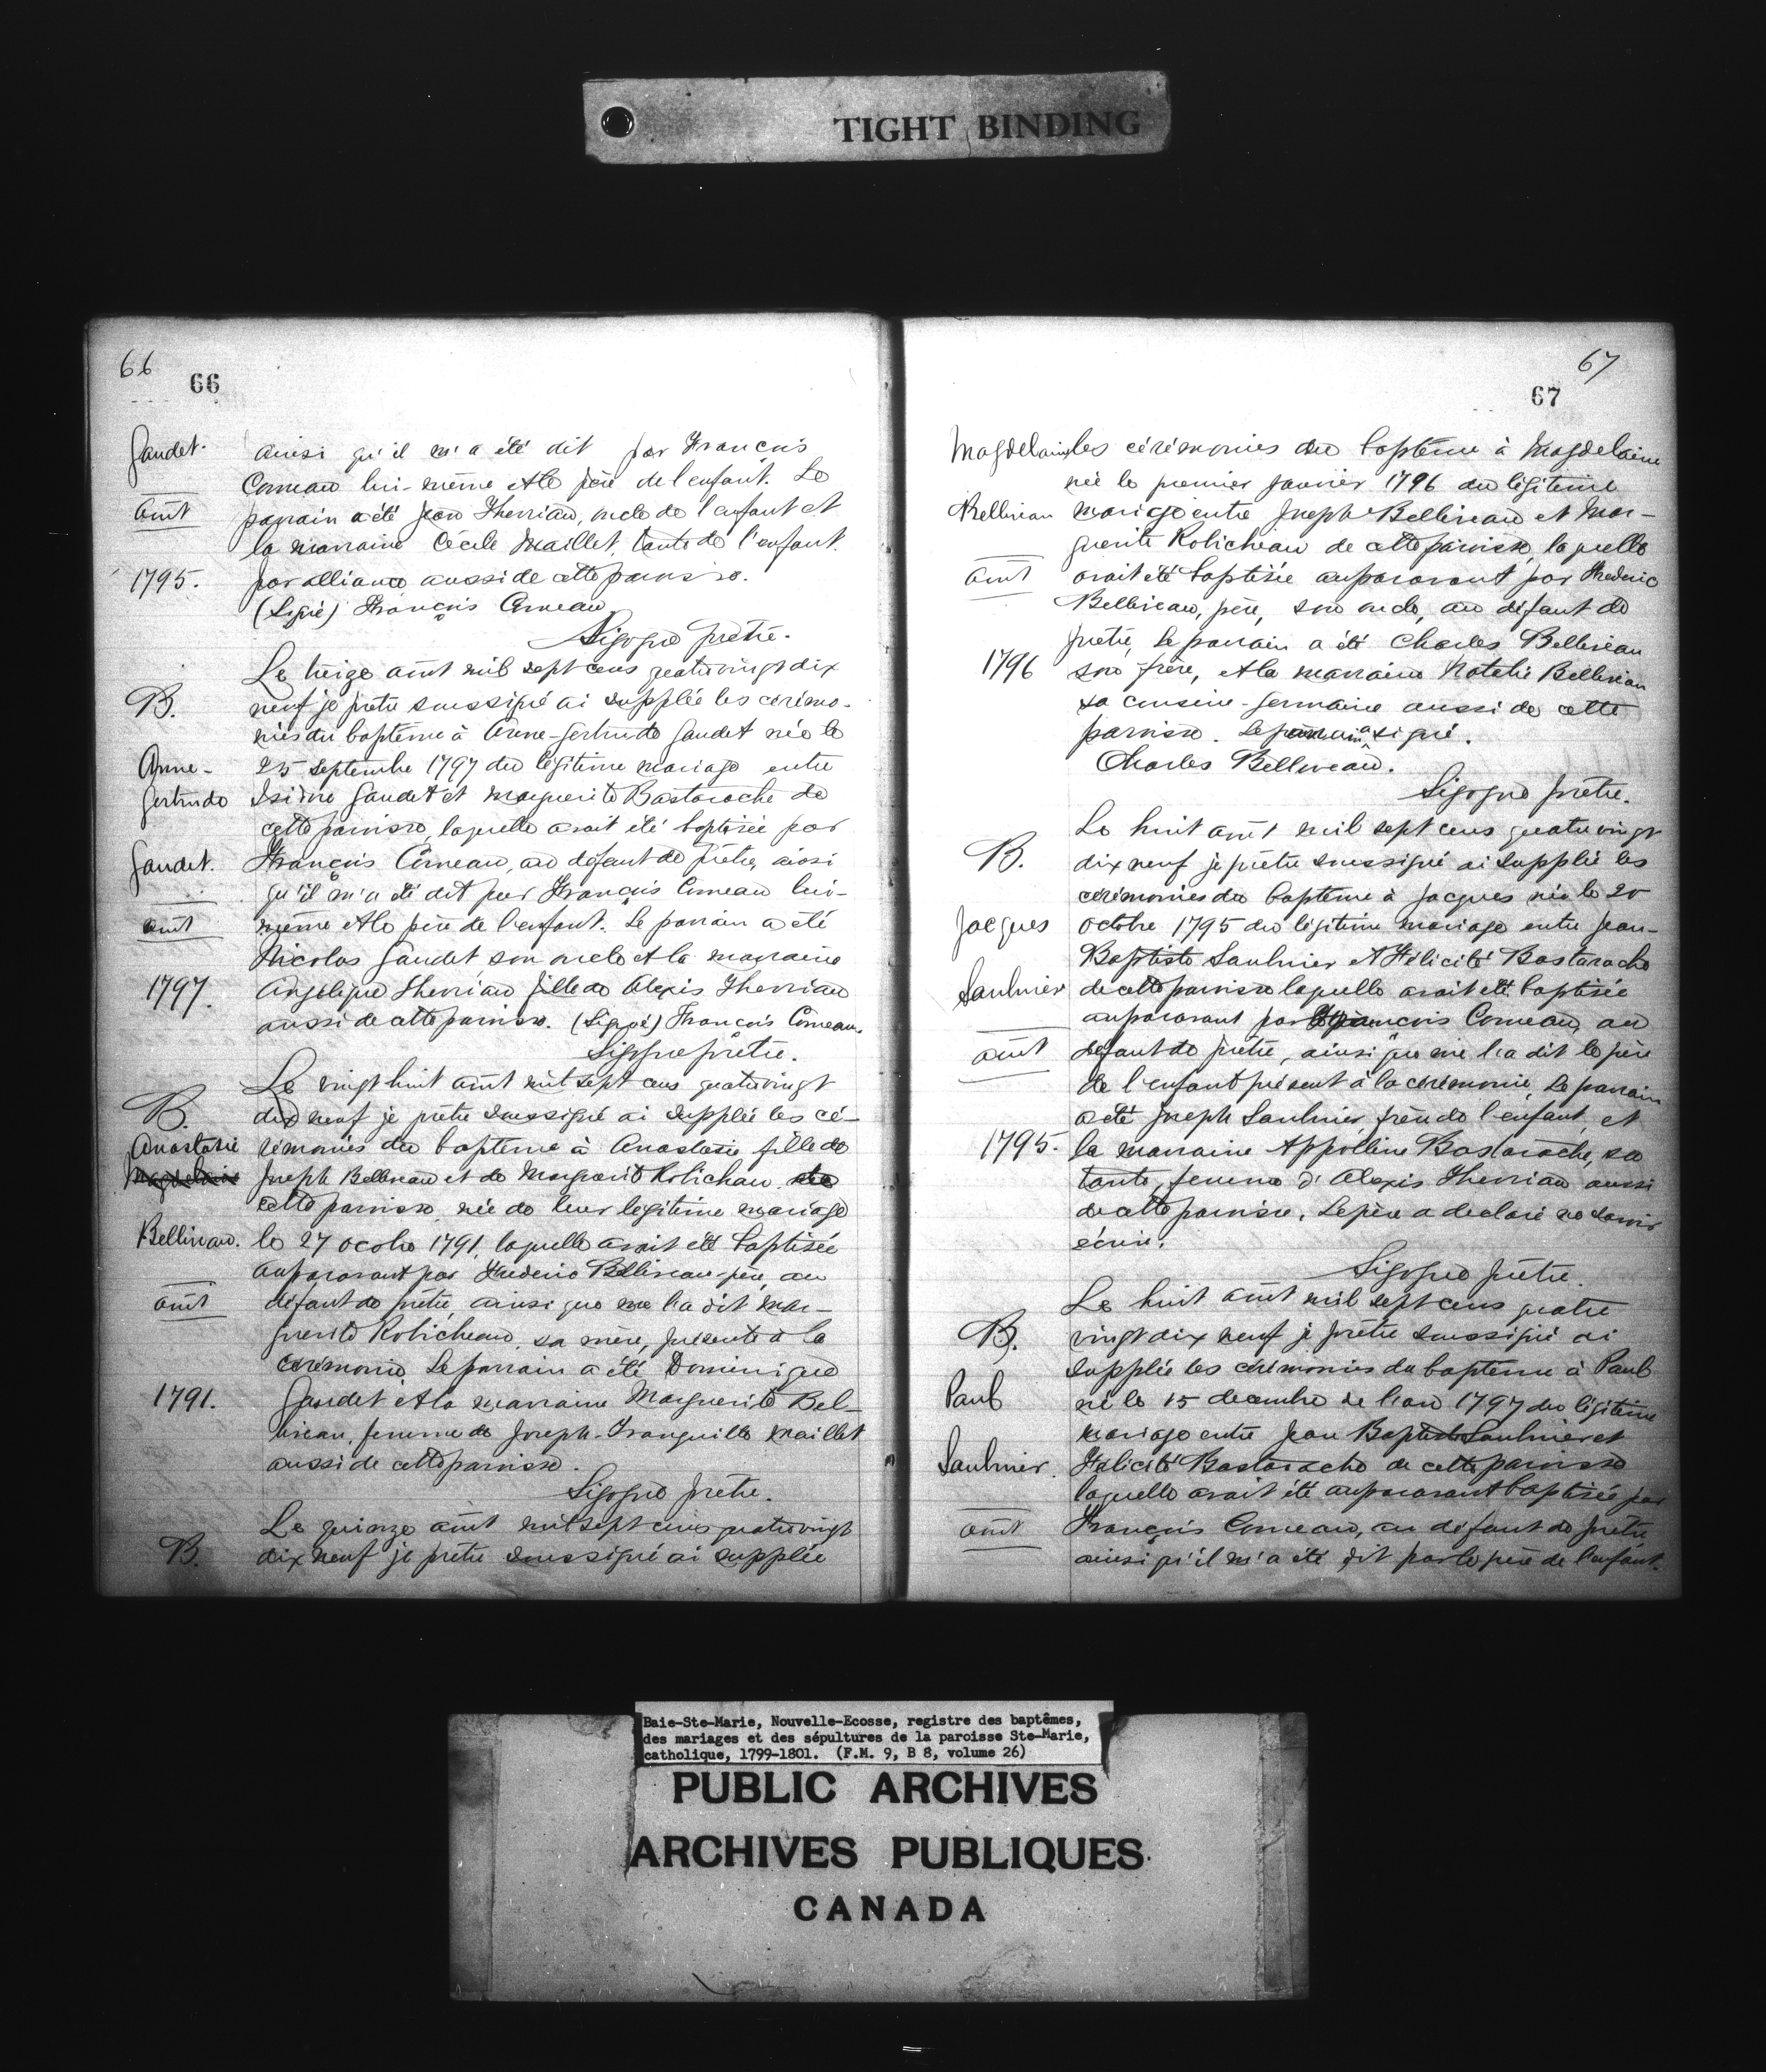 TIGHT BINDING
66
66
Gaudet.
août
1795.
ainsi qu'il m'a été dit par François
Comeau lui-même et le père de l'enfant. Le
parrain a été Jean Therriau, oncle de l'enfant et
la marraine Cécile Maillet, tante de l'enfant.
par alliance aussi de cette paroisse.
(Signé) François Comeau
Sigogne prêtre.
B.
Anne-
Gertrude
Gaudet.
août
1797.
Le treize août mil sept cens quatrevingt dix
neuf je prêtre soussigné ai supplée les cérémo-
nies du baptême à Anne-Gertrude Gaudet née le
25 septembre 1797 du légitime mariage entre
Isidore Gaudet et Marguerite Bastarache de
cette paroisse, laquelle avait été baptisée par
François Comeau, au défaut de prêtre, ainsi
qu'il m'a été dit par François Comeau lui-
même et le père de l'enfant. Le parrain a été
Nicolas Gaudet son oncle et la marraine
Angélique Therriau fille de Alexis Therriau
aussi de cette paroisse. (Signé) François Comeau.
Sigogne prêtre.
B.
Anastasie
Magdelaine
Bellivau.
août
1791.
Le vingt huit août mil sept cens quatrevingt
dix neuf je prêtre soussigné ai supplée les cé-
rémonies du baptême à Anastasie fille de
Joseph Belliveau et de Marguerite Robichau, de
cette paroisse, née de leur légitime mariage
le 27 octobre 1791, laquelle avait été baptisée
auparavant par Frederic Belliveau père, au
défaut de prêtre, ainsi que me l'a dit Mar-
guerite Robicheau, sa mère, présente à la
cérémonie, Le parrain a été Dominique
Gaudet et la marraine Marguerite Bel-
liveau, femme de Joseph-Tranquille Maillet
aussi de cette paroisse.
Sigogne prêtre.
B.
Le quinze août mil sept cens quatrevingt
dix neuf je prêtre soussigné ai supplée
67
67
Magdelaine
Belliveau
août
1796
les cérémonies du baptême à Magdelaine
née le premier janvier 1796 du légitime
mariage entre Joseph Belliveau et Mar-
guerite Robicheau de cette paroisse, laquelle
avait été baptisée auparavant par Frederic
Belliveau, père, son oncle, au défaut de
prêtre, le parrain a été Charles Belliveau
son frère, et la marraine Natalie Belliveau
sa cousine-germaine aussi de cette
paroisse. Le parrain a signé.
Charles Belliveau.
Sigogne prêtre.
B.
Jacques
Saulnier
août
1795.
Le huit août mil sept cens quatrevingt
dix neuf je prêtre soussigné ai supplée les
cérémonies du baptême à Jacques née le 20
octobre 1795 du légitime mariage entre Jean-
Baptiste Saulnier et Félicité Bastarache
de cette paroisse laquelle avait été baptisée
auparavant par François Comeau, au
défaut de prêtre, ainsi que me l'a dit le père
de l'enfant présent à la cérémonie, Le parrain
a été Joseph Saulnier, frère de l'enfant, et
la marraine Appolline Bastarache, sa
tante, femme d'Alexis Therriau aussi
de cette paroisse. Le père a declaré ne savoir
écrire.
Sigogne prêtre.
B.
Paul
Saulnier.
août
Le huit août mil sept cens quatre
vingt dix neuf je prêtre soussigné ai
supplée les cérémonies du baptême à Paul
né le 15 decembre de l'an 1797 du légitime
mariage entre Jean Baptiste Saulnier et
Félicité Bastarache de cette paroisse
laquelle avait été auparavant baptisée par
François Comeau, au défaut de prêtre
ainsi qu'il m'a été dit par le père de l'enfant.
Baie-Ste-Marie, Nouvelle-Ecosse, registre des baptêmes,
des mariages et des sépultures de la paroisse Ste-Marie,
catholique, 1799-1801. (F.M. 9, B 8, volume 26)
PUBLIC ARCHIVES
ARCHIVES PUBLIQUES
CANADA